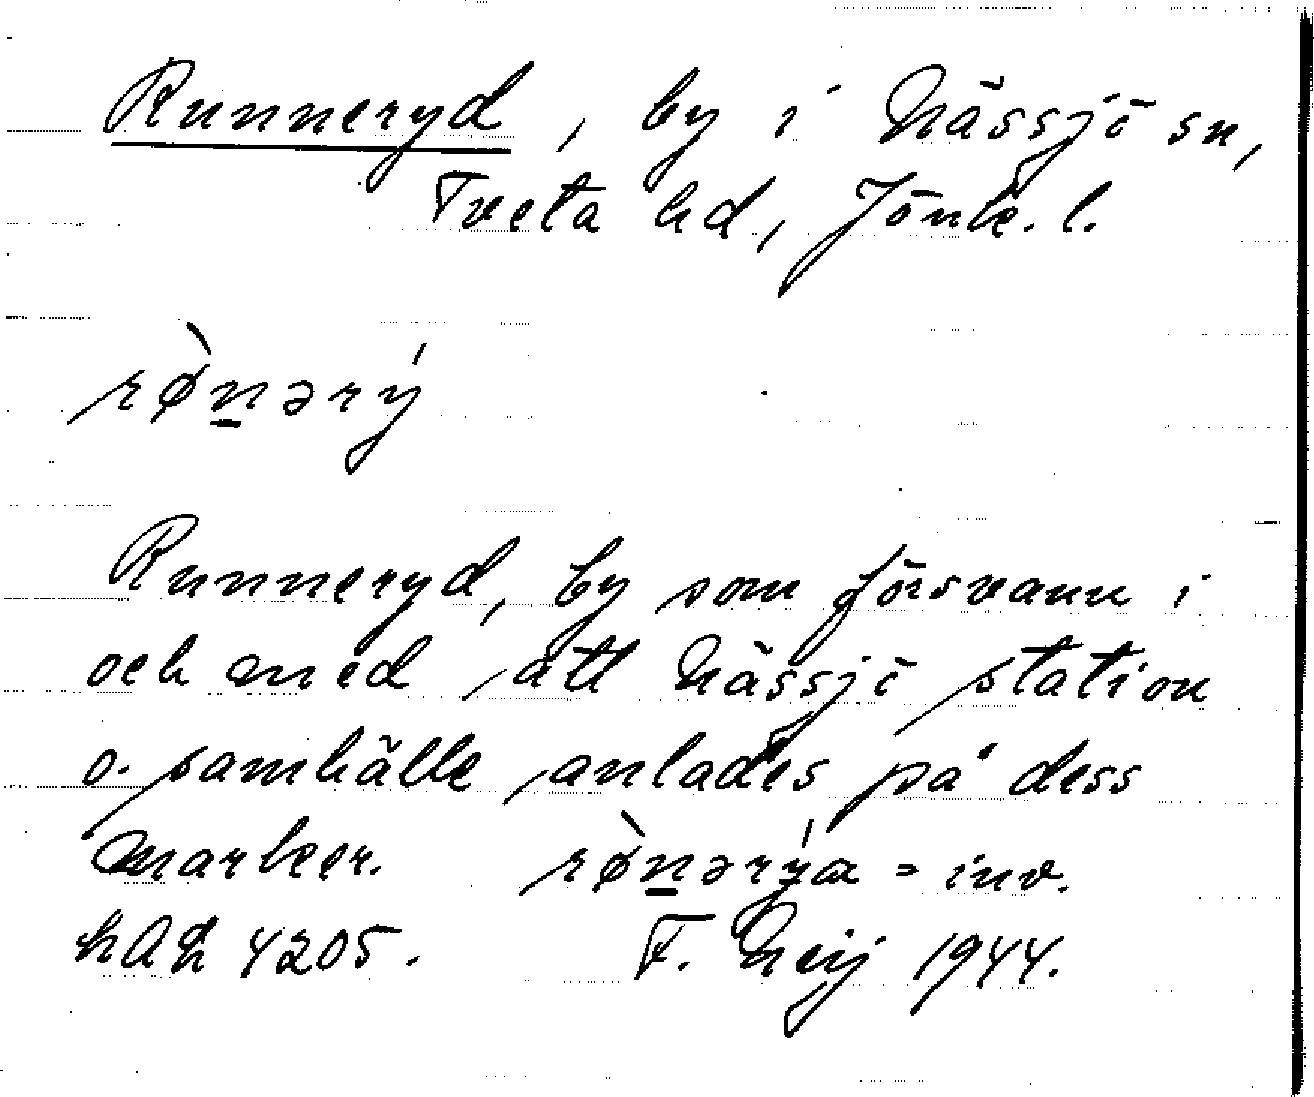 Runneryd, by i Nässjö sn,
Tveta hd, Jönk. l.
rø̀nərý
Runneryd, by som försvann i
och med att Nässjö station
o. samhälle anlades på dess
marker. rø̀nərýa = inv.
4205. F. Neij 1944.